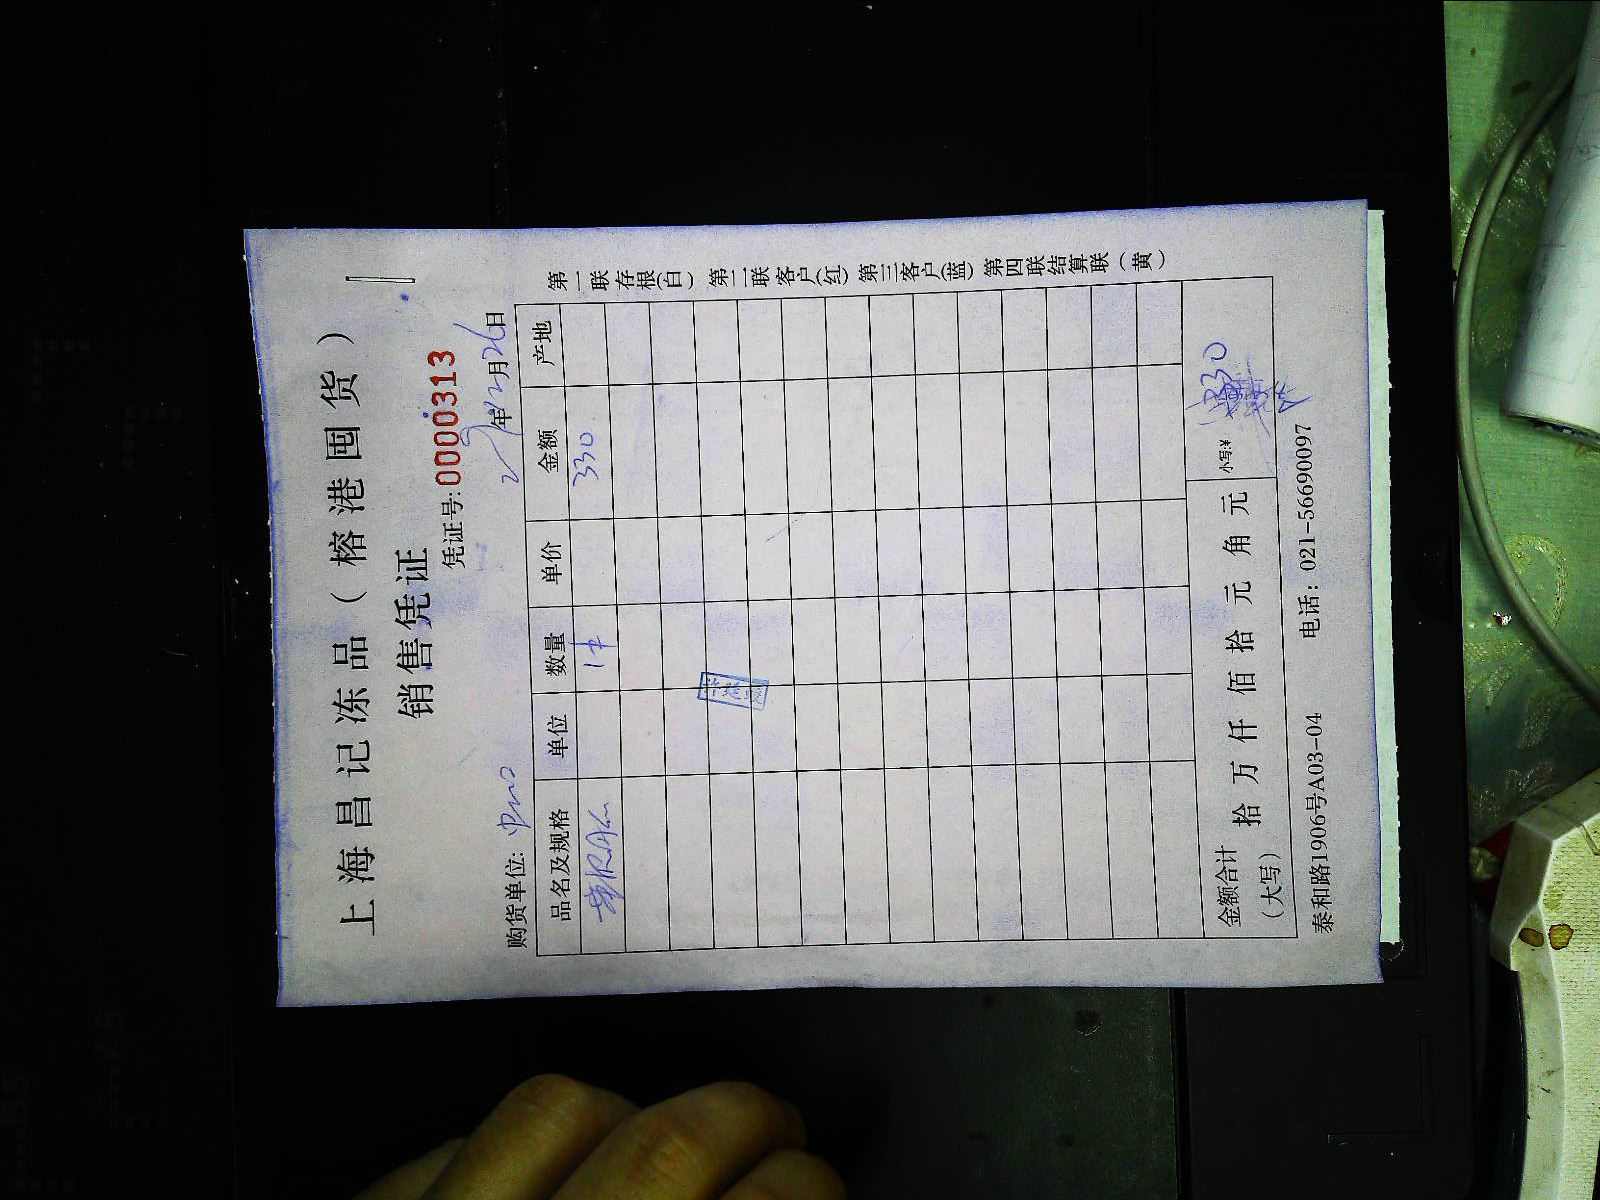 上海昌记冻品（榕港囤货）
销售凭证
凭证号: 0000313
年12月26日
购货单位:
品名及规格 单位 数量 单价 金额 产地
1件 330
金额合计（大写） 拾 万 仟 佰 拾 元 角 元 小写:¥ 330
泰和路1906号A03-04 电话：021-56690097
第一联存根(白) 第二联客户(红) 第三客户(蓝) 第四联结算联（黄）